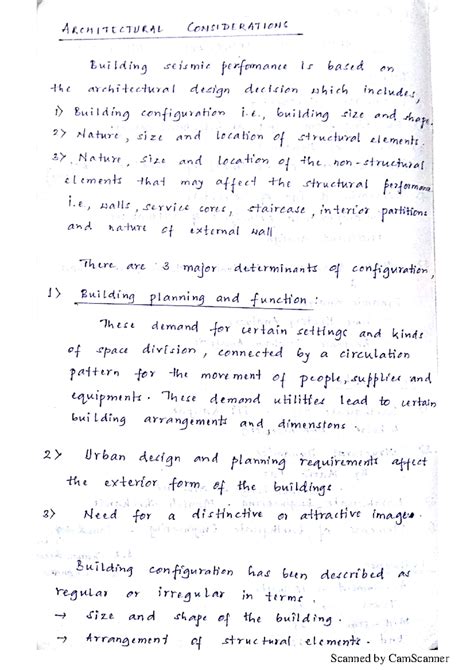 ARCHITECTURAL CONSIDERATIONS
Building seismic perfomance is based on
the architectural design decision which includes,
1) Building configuration i.e., building size and shape.
2) Nature, size and location of structural elements.
3) Nature, size and location of the non-structural
elements that may affect the structural performance
i.e, walls, service cores, staircase, interior partitions
and nature of external wall
There are 3 major determinants of configuration,
1) Building planning and function :
These demand for certain settings and kinds
of space division, connected by a circulation
pattern for the movement of people, supplies and
equipments. These demand utilities lead to certain
building arrangements and dimensions.
2) Urban design and planning requirements affect
the exterior form of the buildings.
3) Need for a distinctive or attractive image.
Building configuration has been described as
regular or irregular in terms.
→ Size and shape of the building.
→ Arrangement of structural elements.
Scanned by CamScanner